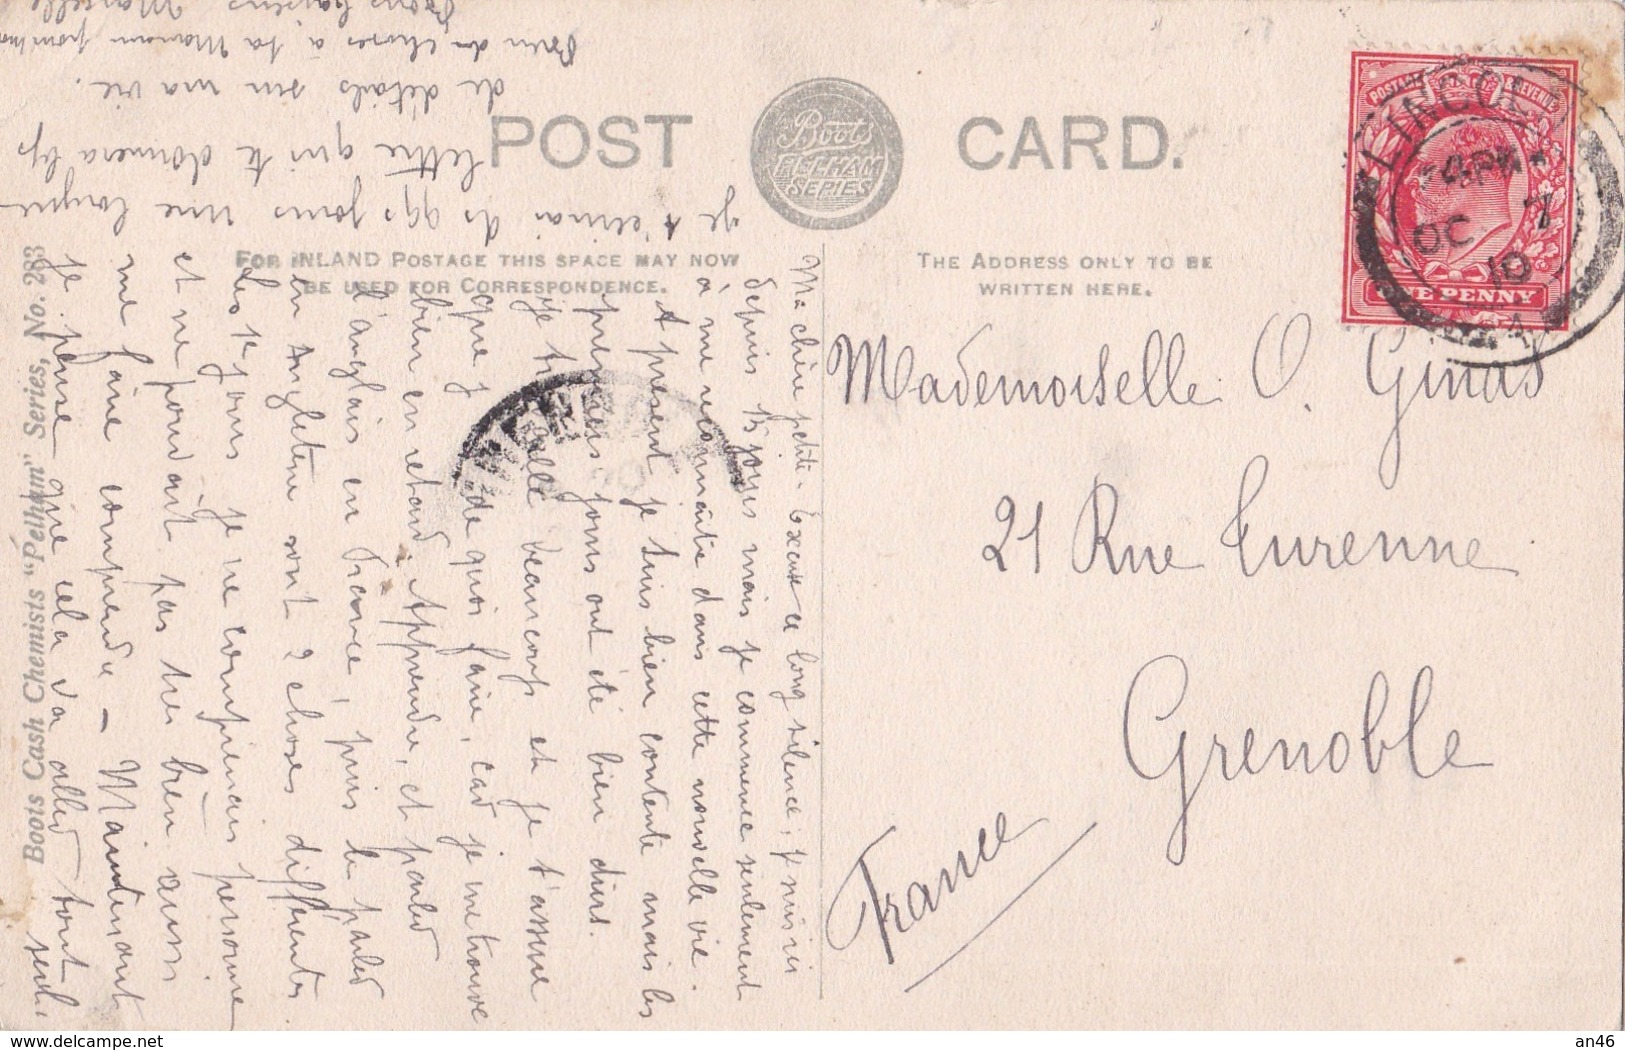 POST CARD.
Boots
PELHAM
SERIES
FOR INLAND POSTAGE THIS SPACE MAY NOW
BE USED FOR CORRESPONDENCE.
THE ADDRESS ONLY TO BE
WRITTEN HERE.
Boots Cash Chemists "Pelham" Series, No. 283
POSTAGE REVENUE
ONE PENNY
LINCOLN
OC 7
10
Mademoiselle O.
21 Rue Turenne
Grenoble
France
Ma chère petite. Excuse ce long silence, je suis ici
depuis 15 jours mais je commence seulement
à me reconnaître dans cette nouvelle vie.
A présent je suis bien contente mais les
premiers jours ont été bien durs.
Je travaille beaucoup et je t'assure
que j'ai de quoi faire, car je me trouve
bien en retard. Apprendre, et parler
l'anglais en France, puis le parler
en Angleterre sont 2 choses différentes
les 1ers jours je ne comprenais personne
et ne pouvait pas très bien aussi
me faire comprendre - Maintenant
je pense que cela va aller tout seul.
Je t'écrirai ds qqs jours une longue
lettre qui te donnera bp
de détails sur ma vie.
Bien des choses à ta Maman
Bons baisers Marcelle
an46